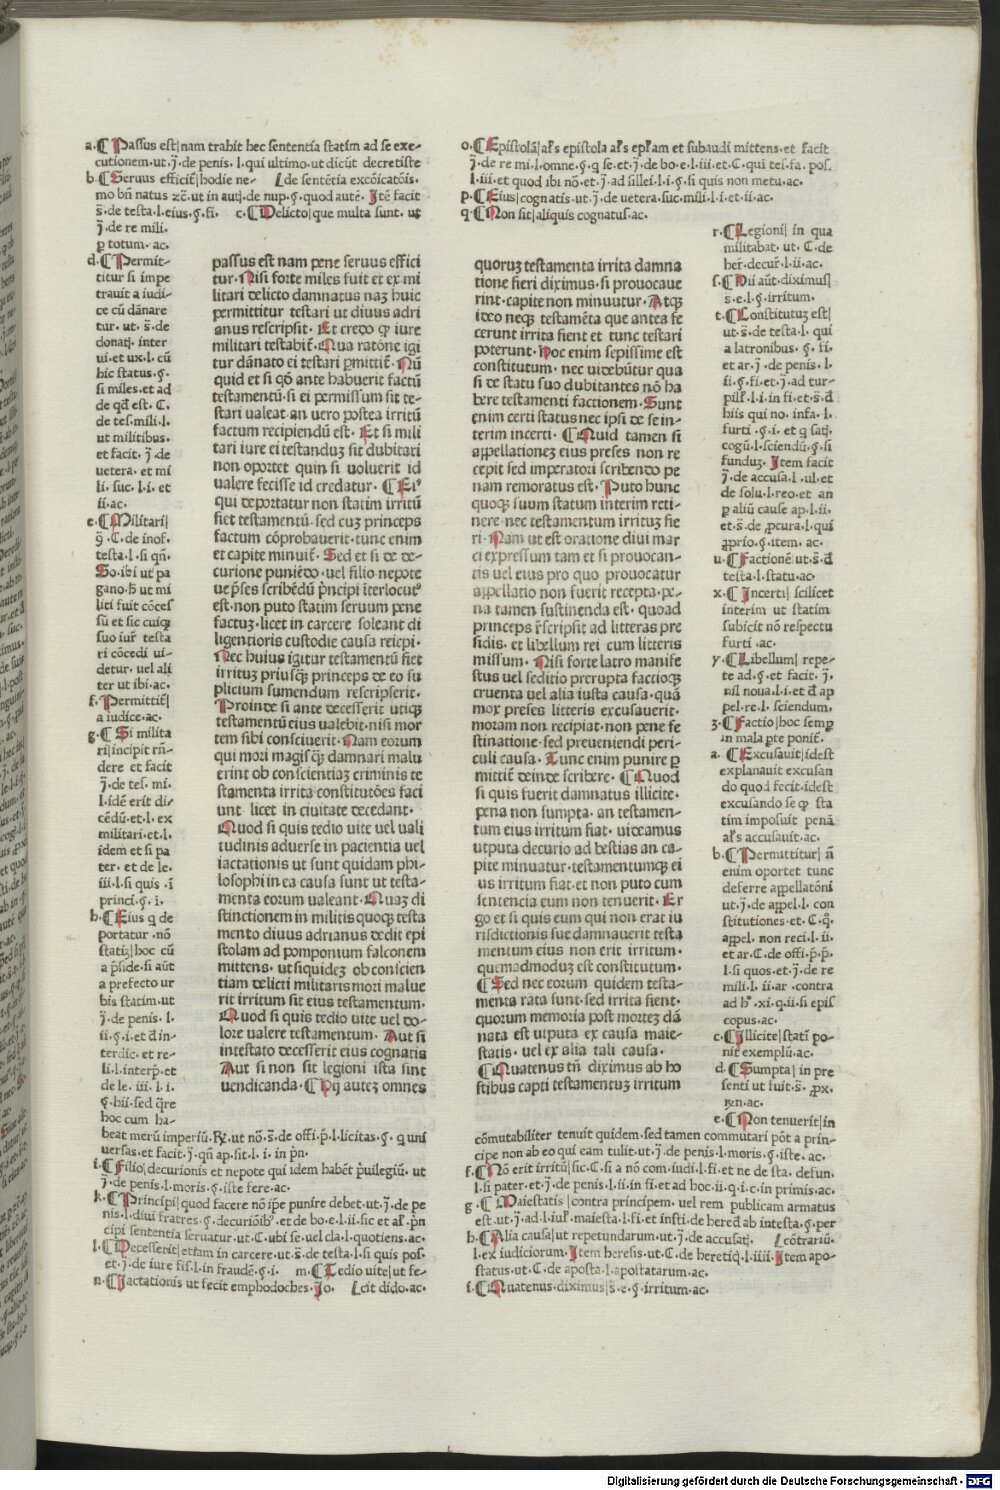 a.¶Passus est|nam trahit hec sententia statim ad se exe-
cutionem.ut.j̄.de penis.l.qui ultimo.ut dicūt decretiste
b.¶Seruus efficit̄|hodie ne- [de sentētia excōicatōis.
mo bn̄ natus
s̄.de testa.l.eius.§.fi. c.¶Delicto|que multa sunt. ut
j̄.de re mili.
ꝑ totum. ac.
d.¶Permit-
titur si impe
trauit a iudi-
ce cū dānare
tur. ut. s̄.de
donatꝭ. inter
ui.et ux.l. cū
hic status.§.
si miles.et ad
de tes̄.mili.l.
ut militibus.
et facit. j̄.de
uetera. et mi
li. suc. l.i. et
ii.ac.
e.¶Militari|
testa.l.si qn̄.
So.ibi ut pa
liti fuit cōces
sū et sic cuiqꝫ
suo iur̄ testa
ri cōcedi ui-
detur. uel ali
ter ut ibi.ac.
f.¶Permittit̄|
a iudice.ac.
g.¶Si milita
ri|incipit rn̄-
dere et facit
j̄.de tes̄. mi.
l.idē erit di-
cēdū.et.l.ex
militari.et.l.
idem et si pa
ter. et de le.
iii.l.si quis .i
princi.§.i.
h.¶Eius q de
portatur .nō
statiꝫ|hoc cū
a p̄side.si aūt
a prefecto ur
bis statim.ut
j̄.de penis. l.
terdic. et re-
de le. iii. l. i.
hoc cum ha-
beat merū imperiū.
uersas.et facit.j̄.
i.¶Filio|decurionis et nepote qui idem habēt p̄uilegiū. ut
j̄.de penis.l.moris.§.iste fere.ac.
k.¶Principi|quod facere nō ip̄e punire debet.ut.j̄.de pe
nis.l.diui fratres.§.
cipi sententia seruatur.ut.C.ubi se.uel cla.l.quotiens.ac.
l.¶Decesserit|etiam in carcere.ut.s̄.de testa.l.si quis pos.
et.j̄.de iure fis.l.in fraudē.§.i. m.¶Tedio uite|ut fe-
n.¶Jactationis ut fecit emphodoches.Jo. [cit dido.ac.
passus est nam pene seruus effici
tur.Nisi forte miles fuit et ex mi
litari delicto damnatus naꝫ huic
permittitur testari ut diuus adri
anus rescripsit. Et credo qꝫ iure
militari testabit̄.Qua ratōne igi
tur dānato ei testari ꝑmittit̄.Nū
quid et si qd̄ ante habuerit factū
testamentū.si ei permissum sit te-
stari ualeat.an uero postea irritū
factum recipiendū est. Et si mili
tari iure ei testanduꝫ sit dubitari
non oportet quin si uoluerit id
ualere fecisse id credatur. ¶Eiꝰ
qui deportatur non statim irritū
fiet testamentū.sed cuꝫ princeps
factum cōprobauerit.tunc enim
et capite minuit̄. Sed et si de de-
curione puniēdo.uel filio nepote
ue p̄ses scribēdū p̄ncipi īterlocutꝰ
est.non puto statim seruum pene
factuꝫ.licet in carcere soleant di
ligentioris custodie causa reicpi.
Nec huius igitur testamentū fiet
irrituꝫ priusqꝫ princeps de eo su
plicium sumendum rescripserit.
Proinde si ante decesserit utiqꝫ
testamentū eius ualebit.nisi mor
tem sibi consciuerit.Nam eorum
qui mori magisqꝫ damnari malu
erint ob conscientiaꝫ criminis te
stamenta irrita constitutōes faci
unt licet in ciuitate decedant.
Quod si quis tedio uite uel uali
tudinis aduerse in pacientia uel
iactationis ut sunt quidam phi-
losophi in ea causa sunt ut testa-
menta eorum ualeant.Quaꝫ di
stinctionem in militis quoqꝫ testa
mento diuus adrianus dedit epi
stolam ad pomponium falconem
mittens. ut siquideꝫ ob conscien
tiam delicti militaris mori malue
rit irritum sit eius testamentum.
Quod si quis tedio uite uel do-
lore ualere testamentum. Aut si
intestato decesserit eius cognatis
Aut si non sit legioni ista sint
uendicanda. ¶Hij auteꝫ omnes
o.¶Epistolā|al̄s epistola al̄s ep̄lam et subaudi mittens.et facit
l.iii.et quod ibi nō.et.j̄.ad sillei.l.i.§.si quis non metu.ac.
p.¶Eius|cognatis.ut.j̄.de uetera.suc.mili.l.i.et.ii.ac.
q.¶Non sit|aliquis cognatus.ac.
quoruꝫ testamenta irrita damna
tione fieri diximus.si prouocaue
rint.capite non minuutur. Atqꝫ
ideo neqꝫ testamēta que antea fe
cerunt irrita fient et tunc testari
poterunt. Hoc enim sepissime est
constitutum. nec uidebūtur qua
si de statu suo dubitantes nō ha
bere testamenti factionem. Sunt
enim certi status nec ipsi de se in-
terim incerti. ¶Quid tamen si
appellationeꝫ eius preses non re
cepit sed imperatori scribendo pe
nam remoratus est. Puto hunc
quoqꝫ suum statum interim reti-
nere nec testamentum irrituꝫ fie
ri. Nam ut est oratione diui mar
ci expressum tam et si prouocan-
tis uel eius pro quo prouocatur
appellatio non fuerit recepta.pe-
na tamen sustinenda est. quoad
princeps r̄scripsit ad litteras pre
sidis. et libellum rei cum litteris
missum. Nisi forte latro manife
stus uel seditio prerupta factioqꝫ
cruenta uel alia iusta causa.quā
mox preses litteris excusauerit.
moram non recipiat.non pene fe
stinatione.sed preueniendi peri-
culi causa. Tunc enim punire ꝑ
mittit̄ deinde scribere. ¶Quod
si quis fuerit damnatus illicite.
pena non sumpta. an testamen-
tum eius irritum fiat. uideamus
utputa decurio ad bestias an ca-
pite minuatur.testamentumqꝫ ei
us irritum fiat.et non puto cum
sentencia eum non tenuerit. Er
go et si quis eum qui non erat iu
risdictionis sue damnauerit testa
mentum eius non erit irritum.
quemadmoduꝫ est constitutum.
¶Sed nec eorum quidem testa-
menta rata sunt.sed irrita fient.
quorum memoria post morteꝫ dā
nata est utputa ex causa maie-
statis. uel ex alia tali causa.
¶Quatenus tn̄ diximus ab ho
stibus capti testamentuꝫ irritum
r.¶Legioni| in qua
militabat. ut. C.de
her̄.decur̄.l.ii.ac.
s.¶Hii aūt.diximus|
s.e.l.§.irritum.
t.¶Constitutus est|
ut.s̄.de testa.l. qui
a latronibus. §. fi.
et ar.j̄.de penis. l.
fi.§.fi.et.j̄.ad tur-
hiis qui no. infa.l.
cogū.l.sciendū.§.si
funduꝫ. Item facit
j̄.de accusa.l.ul.et
de solu.l.reo.et an
ꝑ aliū cause ap.l.ii.
et.s̄.de ꝓcura.l.qui
ꝓprio.§.item. ac.
testa.l.statu.ac.
x.¶Incerti| scilicet
interim ut statim
subicit nō respectu
furti .ac.
y.¶Libellum| repe-
te ad.§.et facit. j̄.
pel.re.l. sciendum.
z.¶Factio|hoc semꝑ
in mala ꝑte ponit̄.
a. ¶Excusauit|idest
explanauit excusan
do quod fecit.idest
excusando se qꝫ sta
tim imposuit penā
al̄s accusauit.ac.
b.¶Permittitur| n̄
enim oportet tunc
deferre appellatōni
ut.j̄.de appel.l. con
stitutiones.et.C.q̄.
appel. non reci.l.ii.
et ar.C.de offi.p̄.p̄.
l.si quos.et.j̄.de re
mili.l.ii.ar .contra
copus.ac.
c.¶Illicite|statī po-
nit exemplū.ac.
d.¶Sumpta|in pre
senti ut fuit.s̄. ꝓx.
e.¶Non tenuerit|in
cōmutabiliter tenuit quidem.sed tamen commutari pōt a prin-
cipe non ab eo qui eam tulit.ut.j̄.de penis.l.moris.§.iste. ac.
f.¶Nō erit irritū|sic.C.si a nō com.iudi.l.fi.et ne de sta. defun.
l.si pater.et.j̄.de penis.l.ii.in fi.et ad hoc.ii.q.i.c.in primis.ac.
g.¶Maiestatis|contra principem. uel rem publicam armatus
est.ut.j̄.ad.l.iul̄.maiesta.l.fi.et insti.de hered̄.ab intesta.§.per
h.¶Alia causa|ut repetundarum.ut.j̄.de accusatꝭ. [cōtrariū.
l.ex iudiciorum.Item heresis.ut.C.de heretiq̄.l.iiii.Item apo-
status.ut.C.de aposta.l.apostatarum.ac.
i.¶Quatenus.diximus|s̄.e.§.irritum.ac.
Digitalisierung gefördert durch die Deutsche Forschungsgemeinschaft - DFG